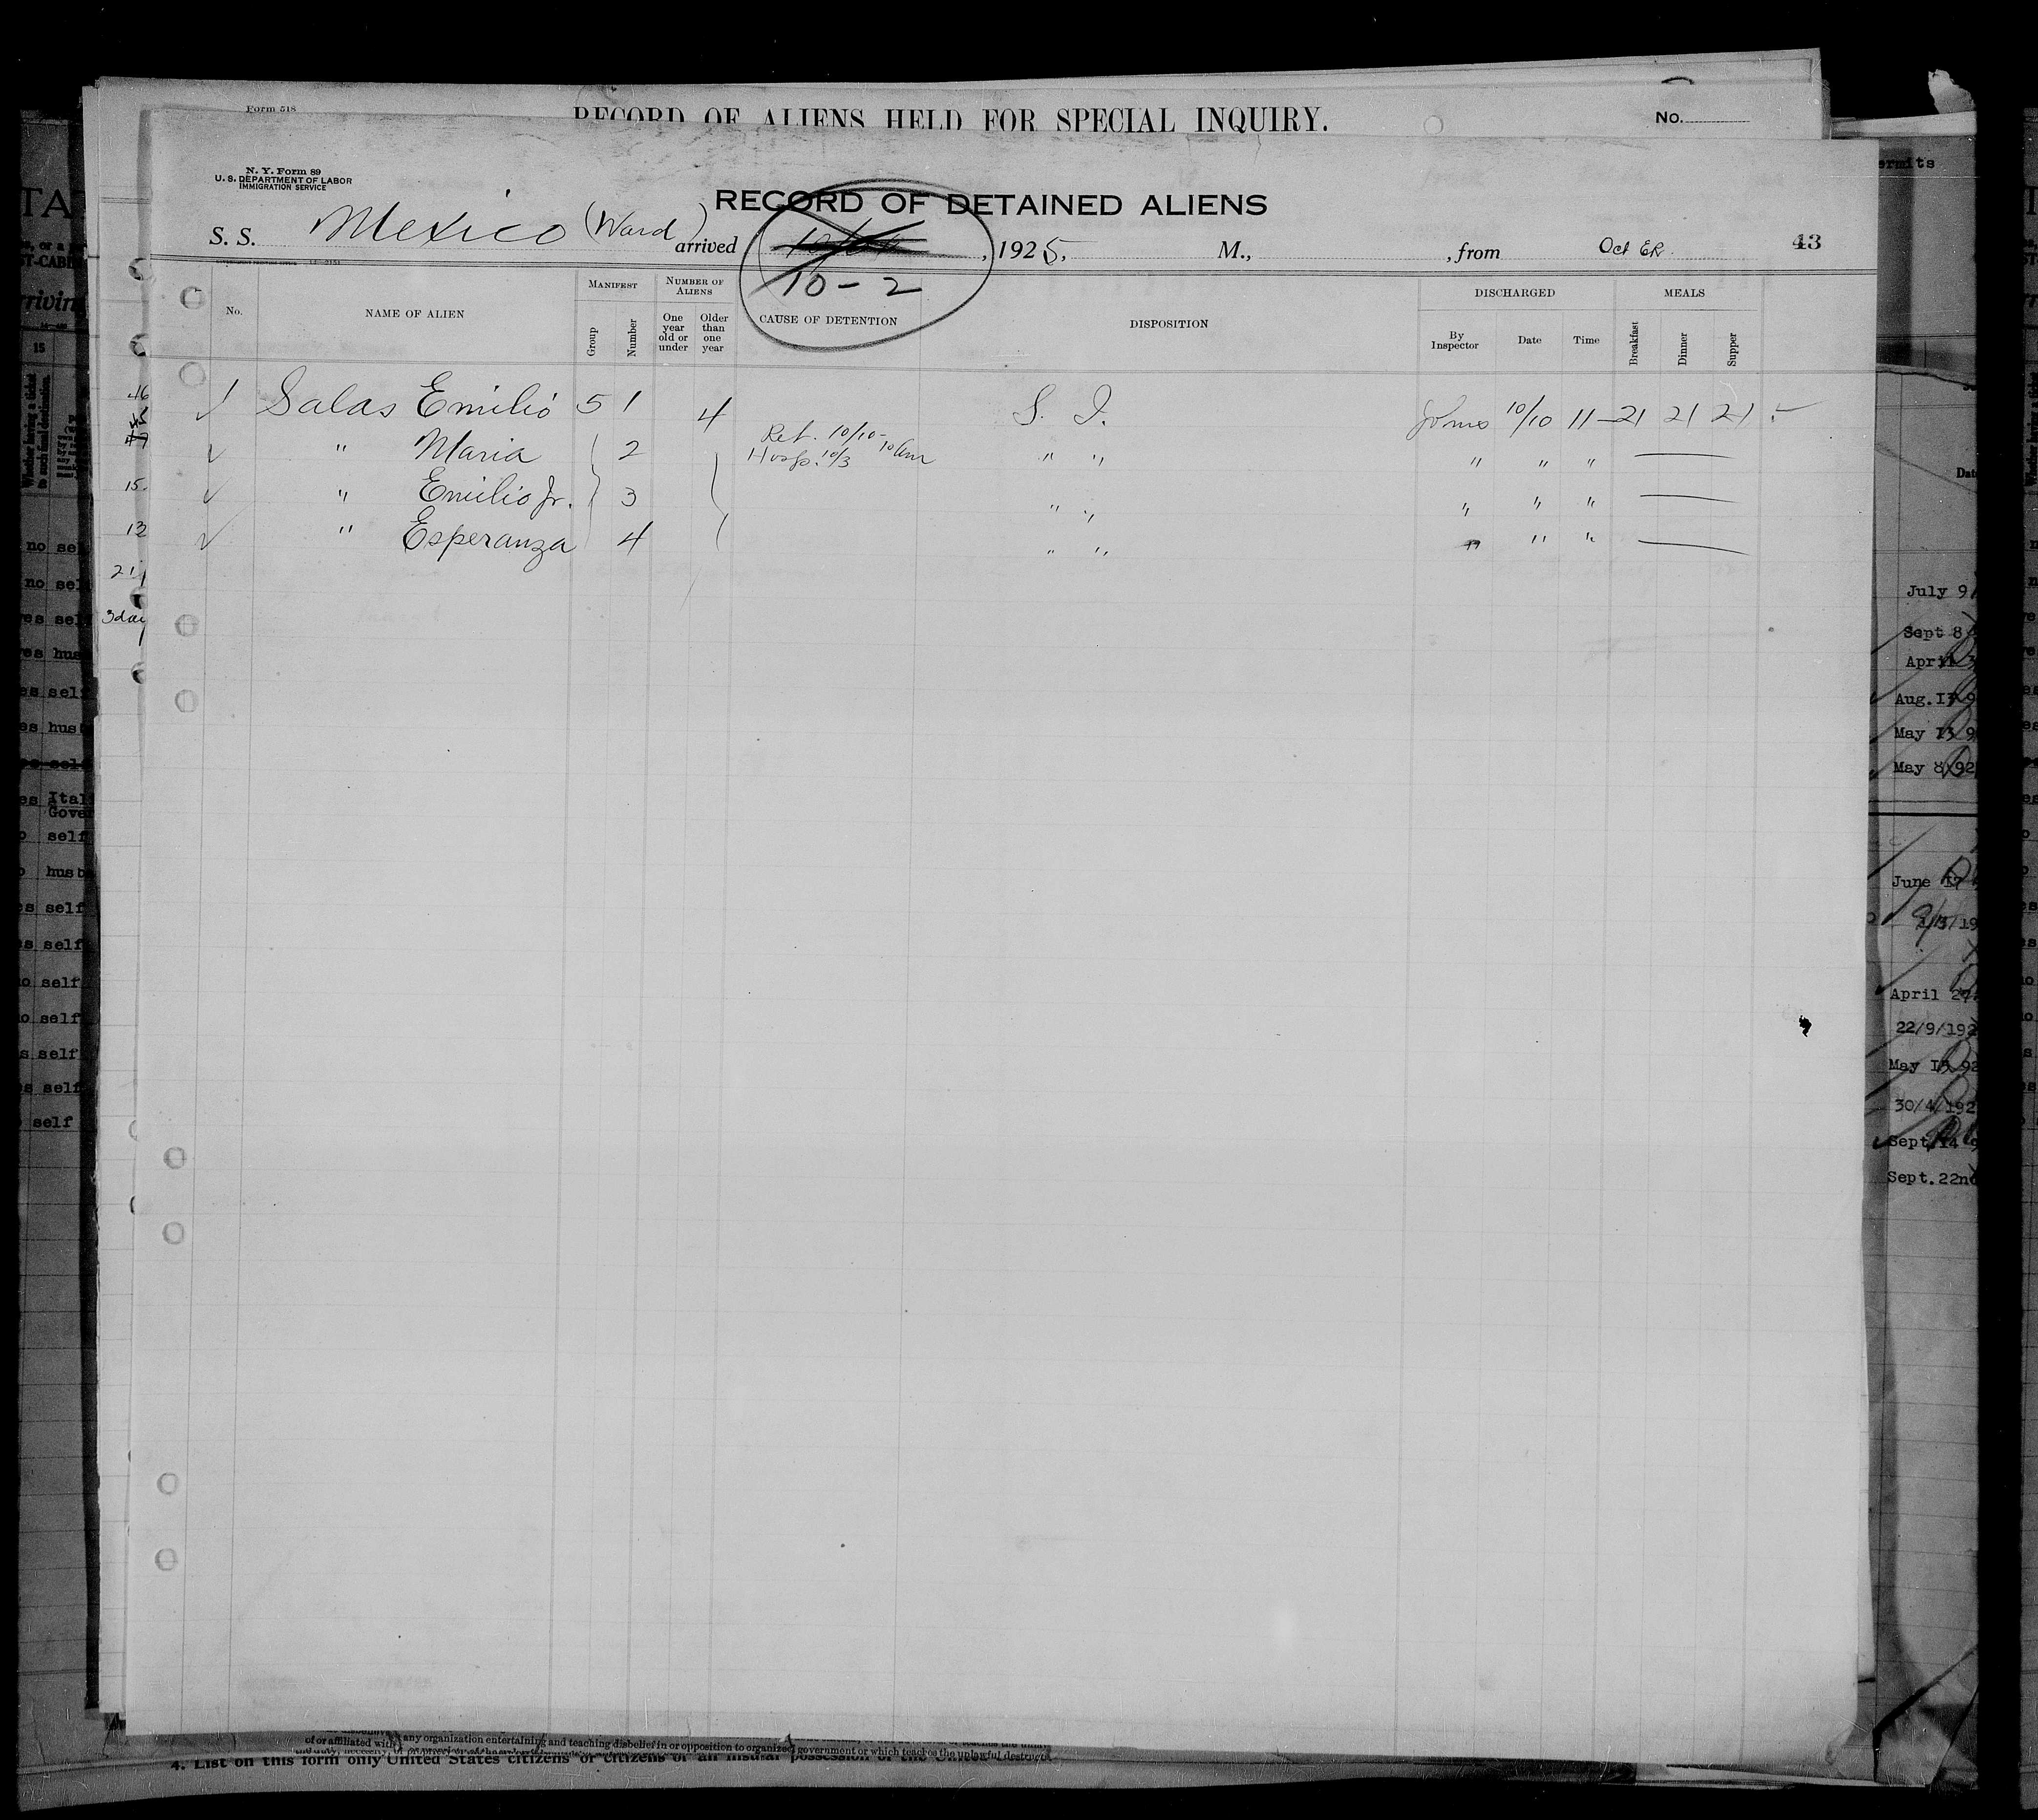 Form 518
RECORD OF ALIENS HELD FOR SPECIAL INQUIRY.
No.
N. Y. Form 89
U. S. DEPARTMENT OF LABOR
IMMIGRATION SERVICE
RECORD OF DETAINED ALIENS
S. S. Mexico (Ward) arrived 10-2, 1925, M., , from Oct ER 43
No. NAME OF ALIEN MANIFEST Group Number NUMBER OF ALIENS One year old or under Older than one year CAUSE OF DETENTION DISPOSITION DISCHARGED By Inspector Date Time MEALS Breakfast Dinner Supper
Salas Emilio 5 1 4 S. I. 10/10 11 21 21 21
" Maria 2 Ret. 10/10- 10 am Hosp. 10/3 " " " " "
" Emilio Jr. 3 " " " " "
" Esperanza 4 " " " " "
46
15
12
21
3 day
ermits
July 9
Sept 8
April 3
Aug. 13 9
May 13 9
May 8 92
June 17
April
22/9/192
May 15 92
30/4/192
Sept. 14
Sept. 22nd
no sel
no sel
es sel
es hus
es sel
es hus
es Ital
Gover
self
husb
s self
s self
o self
o self
s self
s self
self
of or affiliated with any organization entertaining and teaching disbelief in or opposition to organized government or which teaches the unlawful destruct
4. List on this form only United States citizens or citizens of an insular possession of the